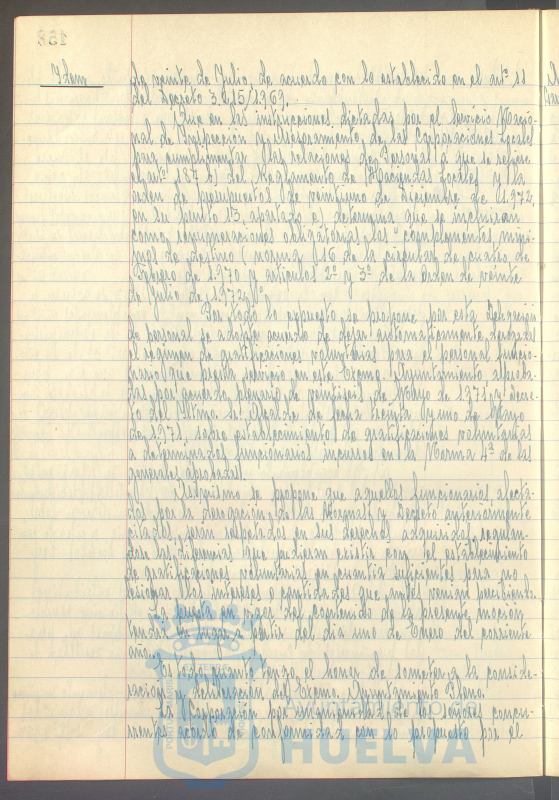 158
Idem
de veinte de Julio, de acuerdo con lo establecido en el artº 11
del Decreto 3.215/1969.
Que en las instrucciones dictadas por el Servicio Nacio-
nal de Inspección y Asesoramiento de las Corporaciones Locales
para cumplimentar las relaciones de Personal a que se refiere
el artº 187 b) del Reglamento de Haciendas Locales y la
orden de presupuestos de veintiuno de Diciembre de 1972,
en su punto 13 apartado e) determina que se incluirán
como remuneraciones obligatorias las "complementos míni-
mos de destino (norma 16 de la circular de cuatro de
Febrero de 1.970 y artículos 2º y 3º de la orden de veinte
de Julio de 1972)".
Por todo lo expuesto se propone por esta Delegación
de personal se adopte acuerdo de dejar automáticamente derogado
el régimen de gratificaciones voluntarias para el personal funcio-
nario que presta servicio en este Excmo. Ayuntamiento, aproba-
das por acuerdo plenario de veintiseis de Mayo de 1971, y Decre-
to del Iltmo. Sr. Alcalde de fecha treinta y uno de Mayo
de 1971, sobre establecimiento de gratificaciones voluntarias
a determinados funcionarios incursos en la Norma 4ª de las
generales aprobadas.
Asimismo se propone que aquellos funcionarios afecta-
dos por la derogación de las Normas y Decreto anteriormente
citados, sean respetados en sus derechos adquiridos,
las diferencias que pudieran existir con el establecimiento
de gratificaciones voluntarias en cuantía suficientes para no
lesionar los intereses o cantidades que antes venían percibiendo.
La puesta en vigor del contenido de la presente moción
tendrá lugar a partir del día uno de Enero del corriente
año.
Es todo cuanto tengo el honor de someter a la conside-
ración y deliberación del Excmo. Ayuntamiento Pleno.
La Corporación por unanimidad de los señores concu-
rrentes acordó de conformidad con lo propuesto por el
Ayuntamiento de
HUELVA